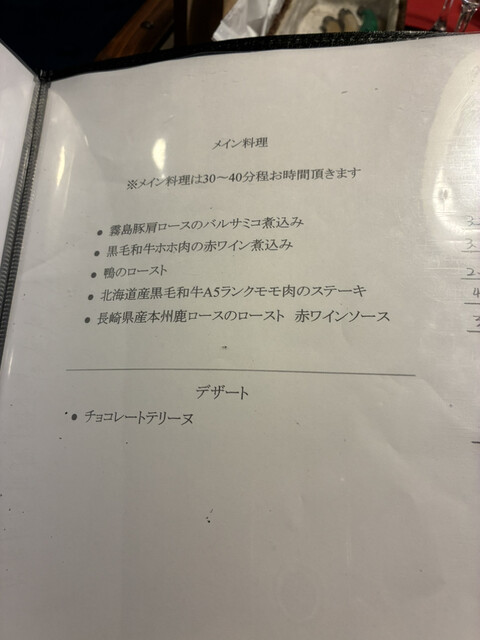 メイン料理
※メイン料理は30～40分程お時間頂きます
● 霧島豚肩ロースのバルサミコ煮込み
● 黒毛和牛ホホ肉の赤ワイン煮込み
● 鴨のロースト
● 北海道産黒毛和牛A5ランクモモ肉のステーキ
● 長崎県産本州鹿ロースのロースト 赤ワインソース
デザート
● チョコレートテリーヌ